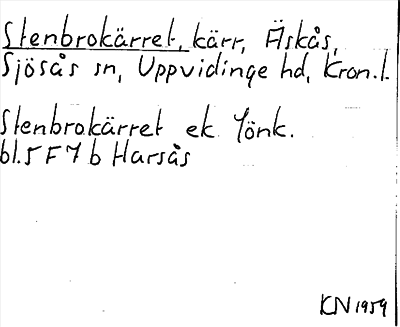 Stenbrokärret, kärr, Äskås,
Sjösås sn, Uppvidinge hd, Kron.l.
Stenbrokärret ek. Jönk.
bl. 5 F 7 b Harsås
KN 1959